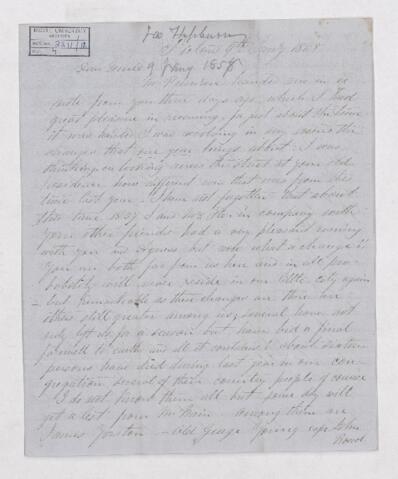 Jas Hepburn
St Johns 9th Jany 1858
9 Jany 1858
handed me in a
note from you three days ago, which I had
great pleasure in receiving, for just about the time
it was handed I was revolving in my mind the
changes that one year brings about. I was
thinking on looking across the street at your old
residence how different now that was from this
time last year. I have not forgotten that about
this time 1857 I and in company with
your other friends had a very pleasant evening
with you and Agness but now what a change is
you are both far from us here and in all pro-
bability will never reside in our little city again
- but remarkable as these changes are there are
others still greater among us, several have not
only left us for a season but have bid a final
farewell to earth and all it contains. about
persons have died during last year in our con-
gregation several of them country people of course
I do not know them all but some day will
get a list from Mr among them are
James - Old George Young Capt John